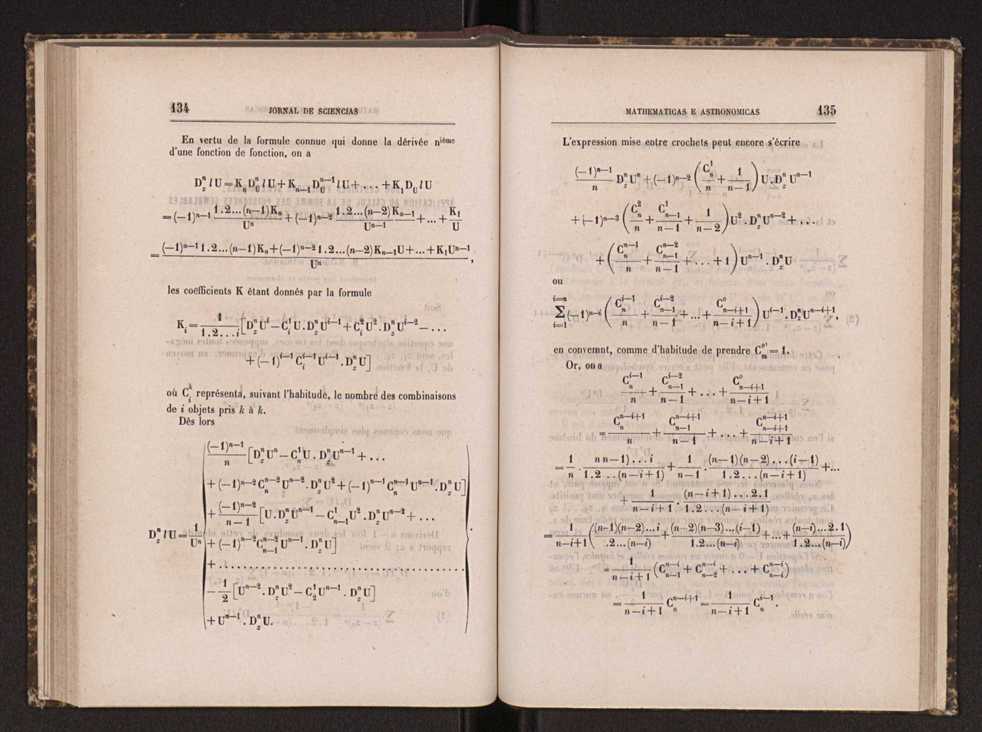 134 JORNAL DE SCIENCIAS
En vertu de la formule connue qui donne la dérivée n^{ième}
d'une fonction de fonction, on a
D_z^n lU = K_n D_U^n lU + K_{n-1} D_U^{n-1} lU + ... + K_1 D_U lU
= (-1)^{n-1} \frac{1.2...(n-1)K_n}{U^n} + (-1)^{n-2} \frac{1.2...(n-2)K_{n-1}}{U^{n-1}} + ... + \frac{K_1}{U}
= \frac{(-1)^{n-1} 1.2...(n-1)K_n + (-1)^{n-2} 1.2...(n-2)K_{n-1}U + ... + K_1U^{n-1}}{U^n},
les coefficients K étant donnés par la formule
K_i = \frac{1}{1.2...i} [D_z^n U^i - C_i^1 U . D_z^n U^{i-1} + C_i^2 U^2 . D_z^n U^{i-2} - ...
+ (-1)^{i-1} C_i^{i-1} U^{i-1} . D_z^n U]
où C_i^k représenta, suivant l'habitude, le nombre des combinaisons
de i objets pris k à k.
Dès lors
\frac{(-1)^{n-1}}{n} [D_z^n U^n - C_n^1 U . D_z^n U^{n-1} + ...
+ (-1)^{n-2} C_n^{n-2} U^{n-2} . D_z^n U^2 + (-1)^{n-1} C_n^{n-1} U^{n-1} . D_z^n U]
+ \frac{(-1)^{n-2}}{n-1} [U . D_z^n U^{n-1} - C_{n-1}^1 U^2 . D_z^n U^{n-2} + ...
D_z^n lU = \frac{1}{U^n}
+ (-1)^{n-2} C_{n-1}^{n-2} U^{n-1} . D_z^n U]
+ ........................................
- \frac{1}{2} [U^{n-2} . D_z^n U^2 - C_2^1 U^{n-1} . D_z^n U]
+ U^{n-1} . D_z^n U.
MATHEMATICAS E ASTRONOMICAS 135
L'expression mise entre crochets peut encore s'écrire
\frac{(-1)^{n-1}}{n} D_z^n U^n + (-1)^{n-2} (\frac{C_n^1}{n} + \frac{1}{n-1}) U . D_z^n U^{n-1}
+ (-1)^{n-3} (\frac{C_n^2}{n} + \frac{C_{n-1}^1}{n-1} + \frac{1}{n-2}) U^2 . D_z^n U^{n-2} + ...
+ (\frac{C_n^{n-1}}{n} + \frac{C_{n-1}^{n-2}}{n-1} + ... + 1) U^{n-1} . D_z^n U
ou
\sum_{i=1}^{i=n} (-1)^{n-i} (\frac{C_n^{i-1}}{n} + \frac{C_{n-1}^{i-2}}{n-1} + ... + \frac{C_{n-i+1}^o}{n-i+1}) U^{i-1} . D_z^n U^{n-i+1},
en convemnt, comme d'habitude de prendre C_m^o = 1.
Or, on a
\frac{C_n^{i-1}}{n} + \frac{C_{n-1}^{i-2}}{n-1} + ... + \frac{C_{n-i+1}^o}{n-i+1}
= \frac{C_n^{n-i+1}}{n} + \frac{C_{n-1}^{n-i+1}}{n-1} + ... + \frac{C_{n-i+1}^{n-i+1}}{n-i+1}
= \frac{1}{n} . \frac{n n-1)...i}{1.2...(n-i+1)} + \frac{1}{n-1} . \frac{(n-1)(n-2)...(i-1)}{1.2...(n-i+1)} + ...
+ \frac{1}{n-i+1} . \frac{(n-i+1)...2.1}{1.2...(n-i+1)}
= \frac{1}{n-i+1} (\frac{(n-1)(n-2)...i}{.2...(n-i)} + \frac{(n-2)(n-3)...(i-1)}{1.2...(n-i)} + ... + \frac{(n-i)...2.1}{1.2...(n-i)})
= \frac{1}{n-i+1} (C_{n-1}^{n-i} + C_{n-2}^{n-i} + ... + C_{n-i}^{n-i})
= \frac{1}{n-i+1} C_n^{n-i+1} = \frac{1}{n-i+1} C_n^{i-1}.